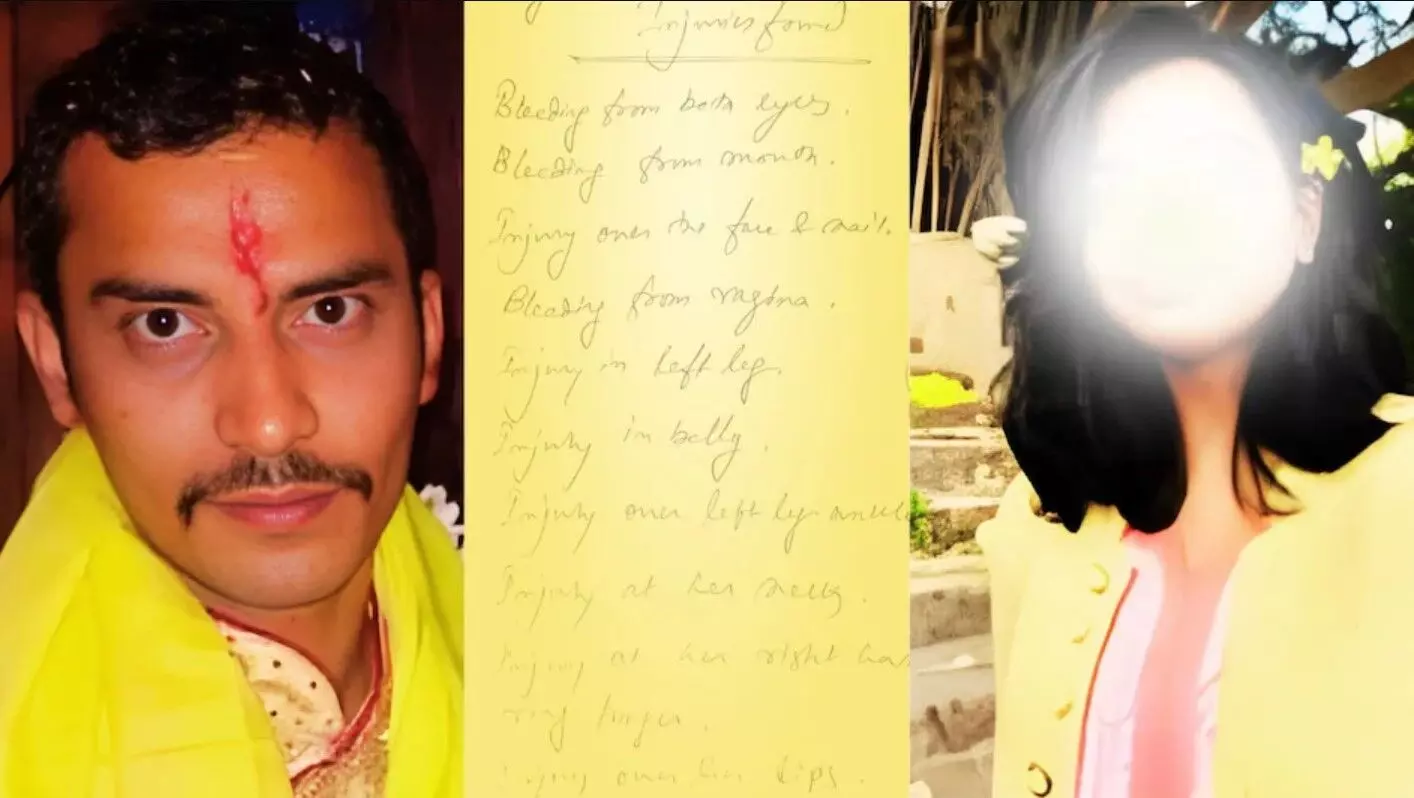 Injuries found
Bleeding from both eyes.
Bleeding from mouth.
Injury over the face & nail.
Bleeding from vagina.
Injury in left leg.
Injury in belly.
Injury over left leg
Injury at her
Injury at her right
ring finger.
Injury over her lips.